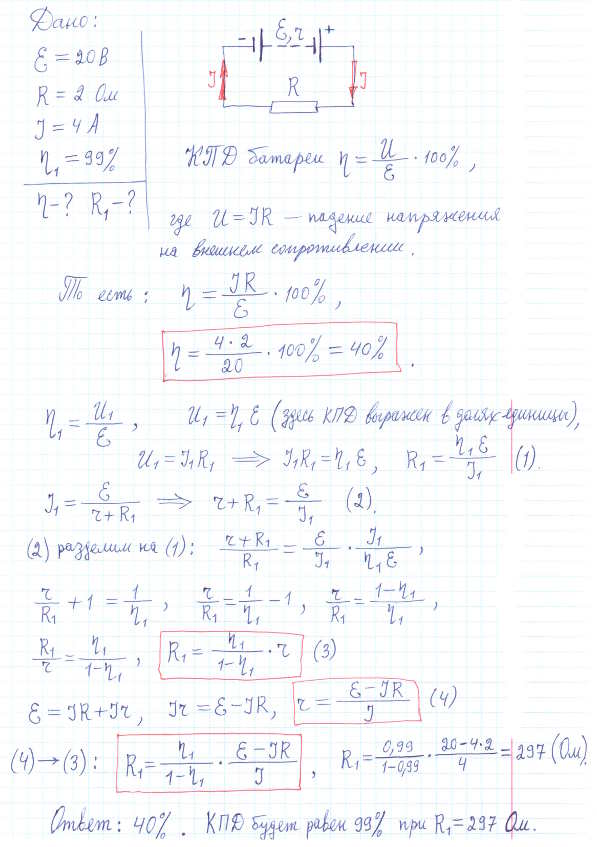 Дано:
ℰ = 20В
R = 2 Ом
I = 4 А
η₁ = 99%
η-? R₁-?
- ℰ, r +
I R I
КПД батареи η = U/ℰ · 100%,
где U = IR — падение напряжения
на внешнем сопротивлении.
То есть: η = IR/ℰ · 100%,
η = 4·2/20 · 100% = 40% .
η₁ = U₁/ℰ , U₁ = η₁ℰ (здесь КПД выражен в долях единицы),
U₁ = I₁R₁ ⟹ I₁R₁ = η₁ℰ, R₁ = η₁ℰ/I₁ (1).
I₁ = ℰ/(r+R₁) ⟹ r+R₁ = ℰ/I₁ (2).
(2) разделим на (1): (r+R₁)/R₁ = ℰ/I₁ · I₁/(η₁ℰ) ,
r/R₁ + 1 = 1/η₁ , r/R₁ = 1/η₁ - 1 , r/R₁ = (1-η₁)/η₁ ,
R₁/r = η₁/(1-η₁) , R₁ = η₁/(1-η₁) · r (3)
ℰ = IR + Ir , Ir = ℰ - IR, r = (ℰ-IR)/I (4)
(4)→(3): R₁ = η₁/(1-η₁) · (ℰ-IR)/I , R₁ = 0,99/(1-0,99) · (20-4·2)/4 = 297 (Ом).
Ответ: 40% . КПД будет равен 99% при R₁ = 297 Ом.